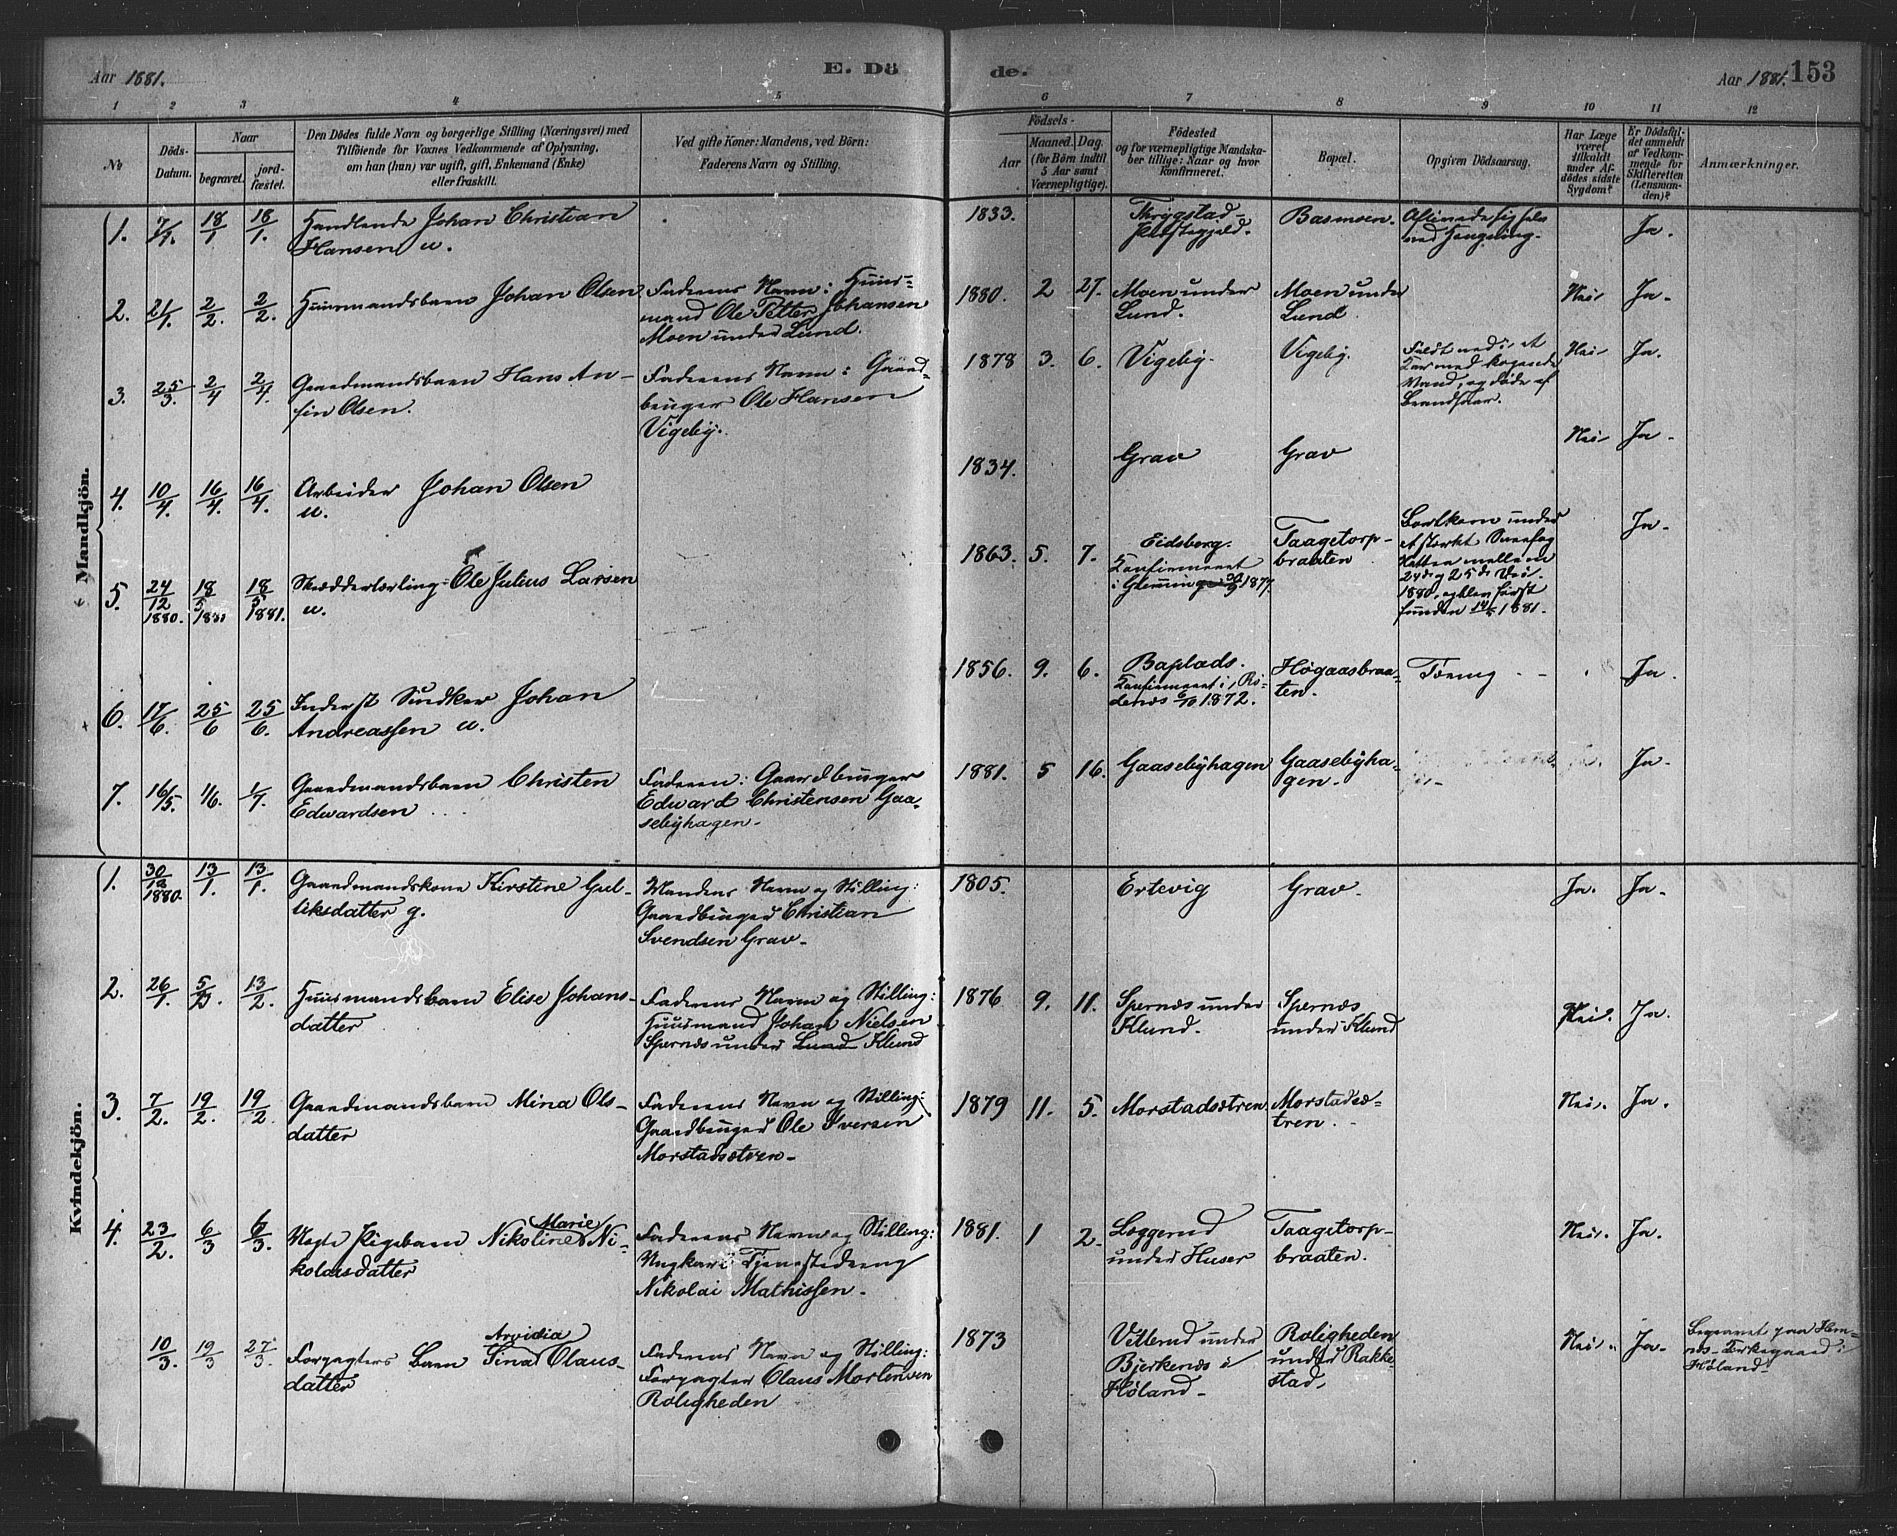 Aar 1881.
E. Dö
de.
Aar 1881.
153
1 2 3 4 5 6 7 8 9 10 11 12
No
Döds-
Datum.
Naar
begravet.
jord-
fæstet.
Den Dödes fulde Navn og borgerlige Stilling (Næringsvei) med
Tilföiende for Voxnes Vedkommende af Oplysning,
om han (hun) var ugift, gift, Enkemand (Enke)
eller fraskilt.
Ved gifte Koner: Mandens, ved Börn:
Faderens Navn og Stilling.
Födsels-
Aar
Maaned.
Dag.
(for Börn indtil
5 Aar samt
Værnepligtige).
Födested
og for værnepligtige Mandska-
ber tillige: Naar og hvor
konfirmeret.
Bopæl.
Opgiven Dödsaarsag.
Har Læge
været
tilkaldt
under Af-
dödes sidste
Sygdom?
Er Dödsfal-
det anmeldt
af Vedkom-
mende for
Skifteretten
(Lensman-
den)?
Anmærkninger.
Mandkjön.
1. 7/1. 18/1 18/1.
Handlende Johan Christian
Hansen u.
1833.
Thrygstad
Præstegjeld.
Basmoen.
Aflivede sig selv
ved Hængning.
Ja.
2. 21/1. 2/2. 2/2.
Huusmandsbarn Johan Olsen
Faderens Navn: Huus-
mand Ole Petter Johansen
Moen under Lund.
1880. 2 27.
Moen under
Lund.
Moen under
Lund.
Nei Ja.
3. 25/3. 2/4 2/4.
Gaardmandsbarn Hans An-
fin Olsen.
Faderens Navn: Gaard-
bruger Ole Hansen
Vigeby.
1878 3. 6.
Vigeby.
Vigeby.
Faldt ned i et
Kar med kogende
Vand, og døde af
Brandsaar.
Nei Ja.
4. 10/4. 16/4. 16/4.
Arbeider Johan Olsen
u.
1834.
Grav
Grav
Nei Ja.
5. 24/12 1880. 18/5 18/5 1881.
Skrædderlærling Ole Julius Larsen
u.
1863. 5. 7.
Eidsberg.
Konfirmeret
i Glemminge 1877.
Taagetorp-
braaten
Bortkom under
et stærkt Snefog
Natten mellem
24de og 25de Dec.
1880, og blev først
funden 1881.
Ja.
6. 17/6. 25/6 25/6.
Inderst Snedker Johan
Andreassen u.
1856. 9. 6.
Baplads.
Konfirmeret i Rø-
denæs 6/10 1872.
Høgaasbraa-
ten.
Tæring
Ja.
7. 16/5. 1/6. 1/7.
Gaardmandsbarn Christen
Edwardsen
Faderen: Gaardbruger
Edward Christensen Gaa-
sebyhagen.
1881. 5 16.
Gaasebyhagen
Gaasebyha-
gen.
Ja.
Kvindekjön.
1. 30/12 1880. 13/1. 13/1.
Gaardmandskone Kirstine Gul-
liksdatter g.
Mandens Navn og Stilling:
Gaardbruger Christian
Svendsen Grav.
1805.
Ertevig
Grav.
Ja. Ja.
2. 26/1. 5/2. 13/2.
Huusmandsbarn Elise Johans-
datter
Faderens Navn og Stilling:
Huusmand Johan Nielsen
Spernæs under Lund Klund
1876 9. 11.
Spernæs under
Klund.
Spernæs
under Klund
Nei. Ja.
3. 7/2. 19/2. 19/2
Gaardmandsbarn Mina Ols-
datter
Faderens Navn og Stilling:
Gaardbruger Ole Iversen
Morstadsætren
1879 11. 5.
Morstadsætren
Morstadsæ-
tren.
Nei. Ja.
4. 23/2. 6/3 6/3.
Uægte Pigebarn Nikoline Marie Ni-
kolaisdatter
Faderens Navn og Stilling:
Ungkarl Tjenestedreng
Nikolai Mathissen.
1881. 1 2.
Læggerud
under Huser
Taagetorp-
braaten.
Nei. Ja.
10/3. 19/3 27/3.
Forpagters Barn Sina Arvidia Claus-
datter
Faderens Navn og Stilling:
Forpagter Claus Mortensen
Roligheden
1873
Vetterud under
Bjerkenæs i
Høland.
Roligheden
under Rakke-
stad.
Nei. Ja.
Begravet paa Hem-
næs-Kirkegaard i
Høland.